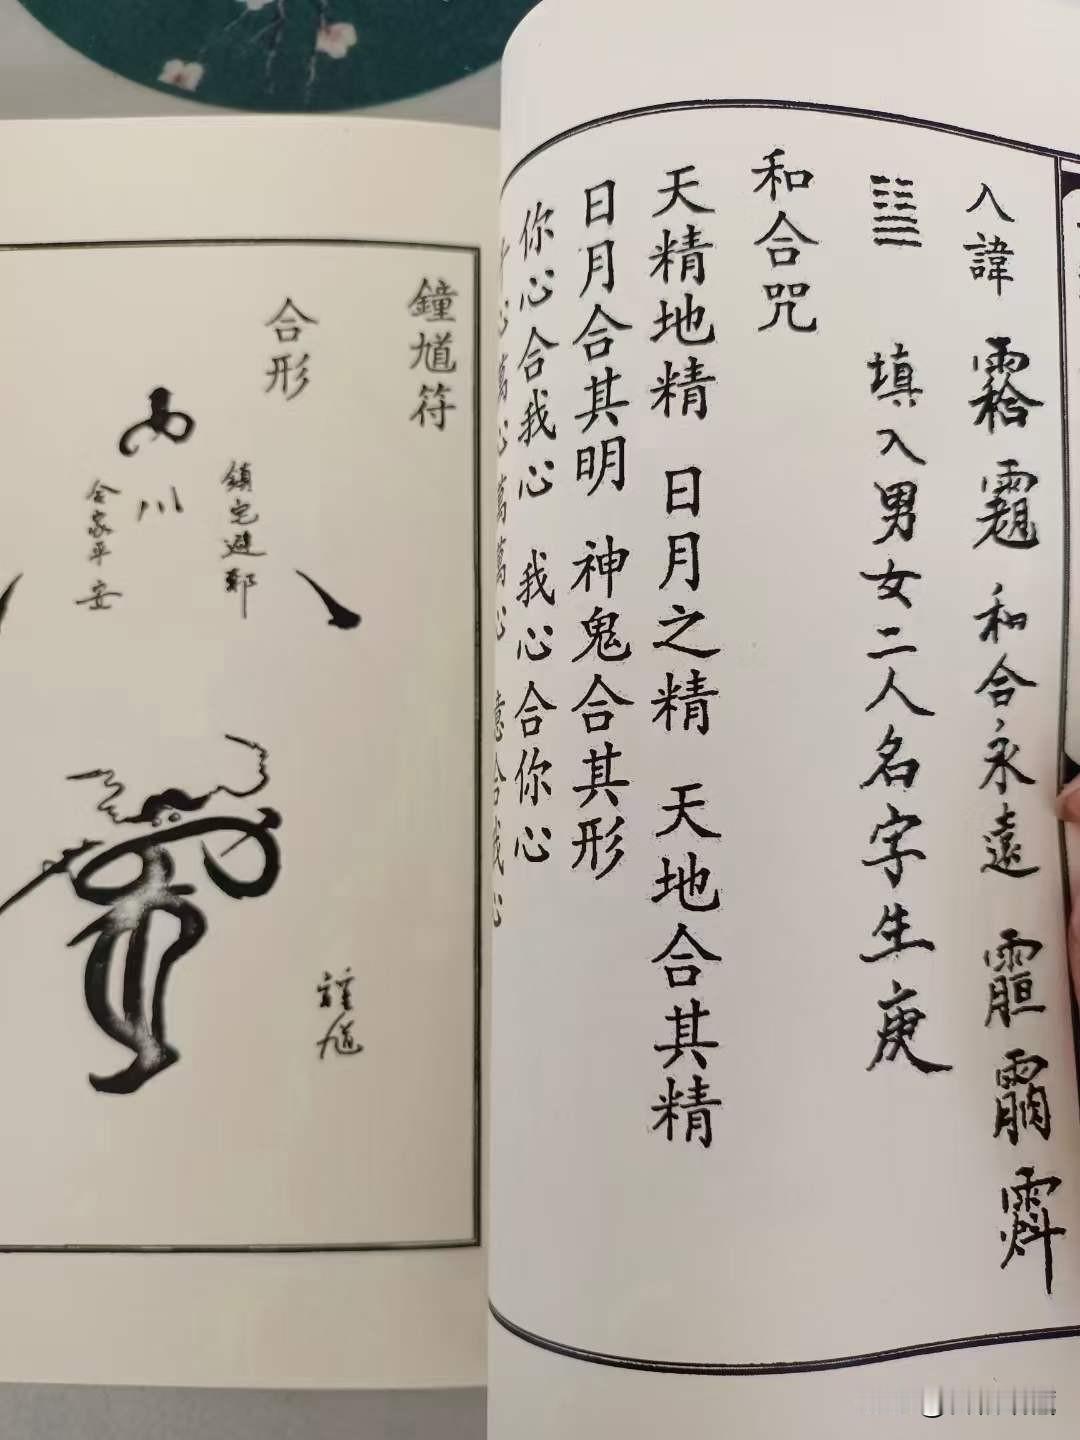 入諱 和合永遠
填入男女二人名字生庚
和合咒
天精地精 日月之精 天地合其精
日月合其明 神鬼合其形
你心合我心 我心合你心
心萬心萬萬心 意合我心
鐘馗符
合形
鎮宅避邪
合家平安
鍾馗